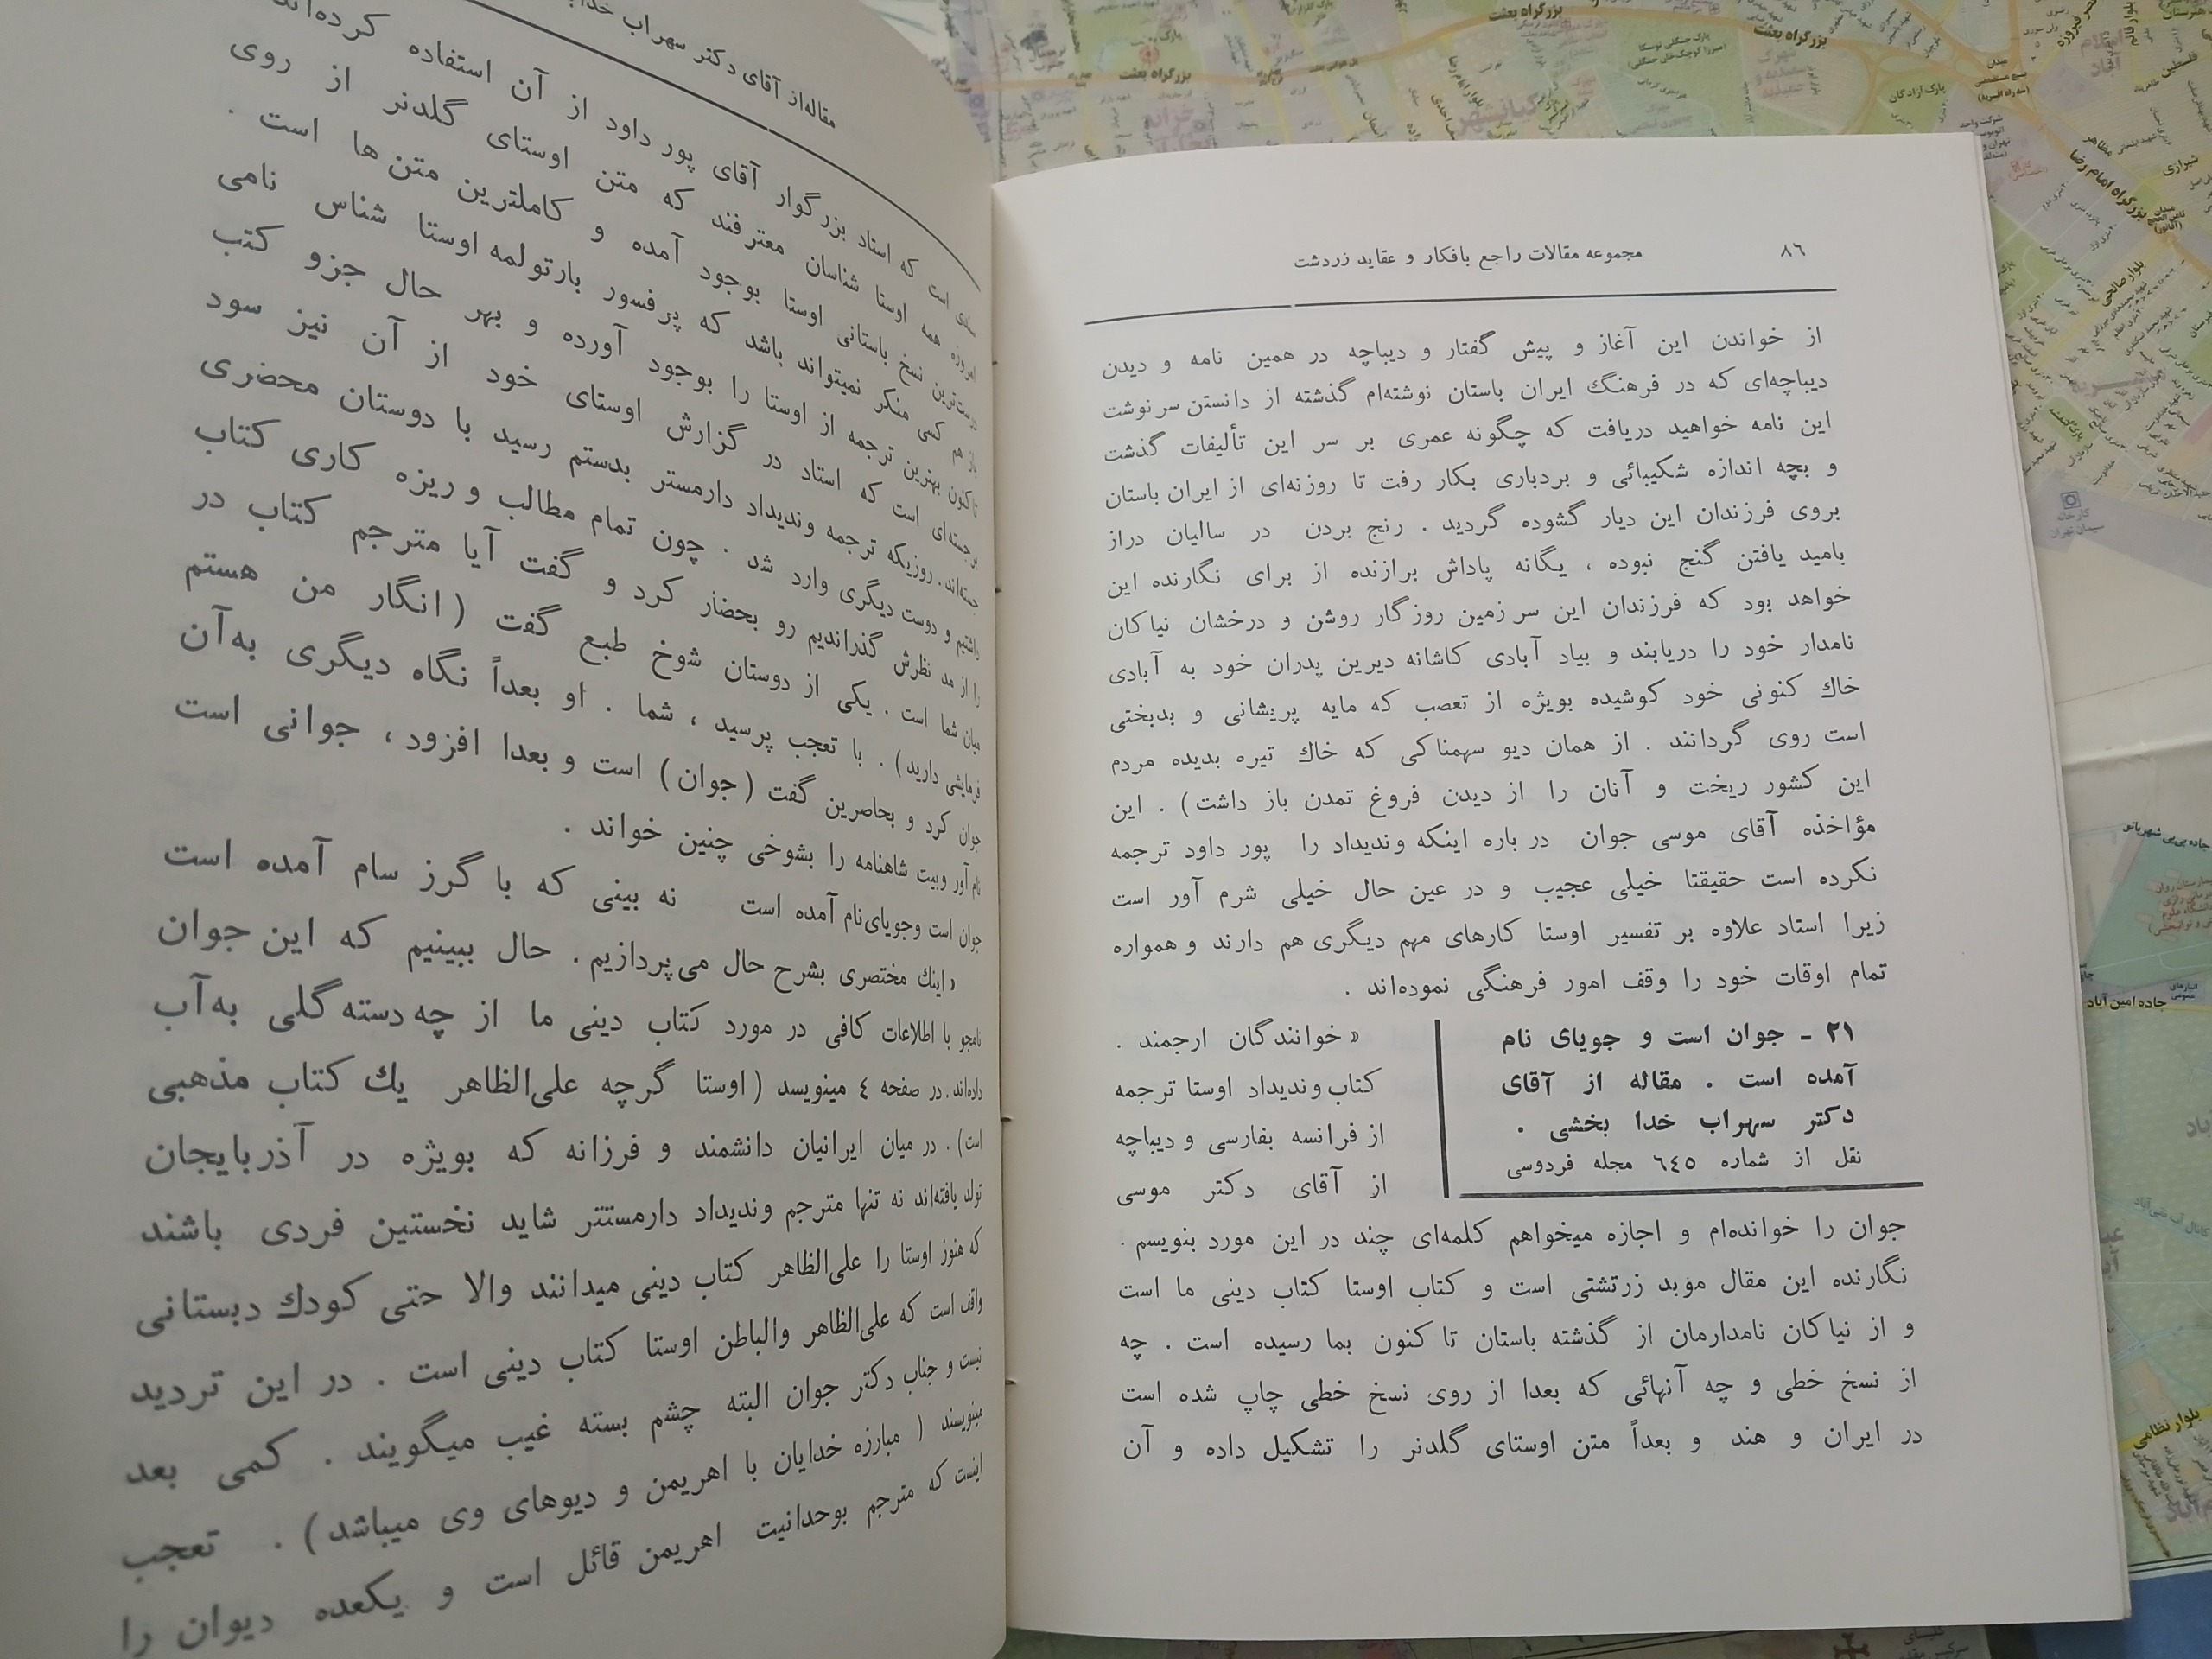 ۸٦
مجموعه مقالات راجع بافکار و عقاید زردشت
از خواندن این آغاز و پیش گفتار و دیباچه در همین نامه و دیدن
دیباچه‌ای که در فرهنگ ایران باستان نوشته‌ام گذشته از دانستن سرنوشت
این نامه خواهید دریافت که چگونه عمری بر سر این تألیفات گذشت
و بچه اندازه شکیبائی و بردباری بکار رفت تا روزنه‌ای از ایران باستان
بروی فرزندان این دیار گشوده گردید . رنج بردن در سالیان دراز
بامید یافتن گنج نبوده ، یگانه پاداش برازنده از برای نگارنده این
خواهد بود که فرزندان این سرزمین روزگار روشن و درخشان نیاکان
نامدار خود را دریابند و بیاد آبادی کاشانه دیرین پدران خود به آبادی
خاك کنونی خود کوشیده بویژه از تعصب که مایه پریشانی و بدبختی
است روی گردانند . از همان دیو سهمناکی که خاك تیره بدیده مردم
این کشور ریخت و آنان را از دیدن فروغ تمدن باز داشت) . این
مؤاخذه آقای موسی جوان در باره اینکه وندیداد را پور داود ترجمه
نکرده است حقیقتا خیلی عجیب و در عین حال خیلی شرم آور است
زیرا استاد علاوه بر تفسیر اوستا کارهای مهم دیگری هم دارند و همواره
تمام اوقات خود را وقف امور فرهنگی نموده‌اند .
۲۱ ـ جوان است و جویای نام
آمده است . مقاله از آقای
دکتر سهراب خدا بخشی .
نقل از شماره ٦٤٥ مجله فردوسی
« خوانندگان ارجمند .
کتاب وندیداد اوستا ترجمه
از فرانسه بفارسی و دیباچه
از آقای دکتر موسی
جوان را خوانده‌ام و اجازه میخواهم کلمه‌ای چند در این مورد بنویسم .
نگارنده این مقال موبد زرتشتی است و کتاب اوستا کتاب دینی ما است
و از نیاکان نامدارمان از گذشته باستان تاکنون بما رسیده است . چه
از نسخ خطی و چه آنهائی که بعدا از روی نسخ خطی چاپ شده است
در ایران و هند و بعداً متن اوستای گلدنر را تشکیل داده و آن
مقاله‌از آقای دکتر سهراب
است که استاد بزرگوار آقای پور داود از آن استفاده کرده‌اند
امروزه همه اوستا شناسان معترفند که متن اوستای گلدنر از روی
نسخ باستانی اوستا بوجود آمده و کاملترین متن ها است .
باز هم کسی منکر نمیتواند باشد که پرفسور بارتولمه اوستا شناس نامی
تاکنون بهترین ترجمه از اوستا را بوجود آورده و بهر حال جزو کتب
برجسته‌ای است که استاد در گزارش اوستای خود از آن نیز سود
جسته‌اند. روزیکه ترجمه وندیداد دارمستر بدستم رسید با دوستان محضری
داشتیم و دوست دیگری وارد شد . چون تمام مطالب و ریزه کاری کتاب
را از مد نظرش گذراندیم رو بحضار کرد و گفت آیا مترجم کتاب در
میان شما است . یکی از دوستان شوخ طبع گفت (انگار من هستم
فرمایشی دارید) . با تعجب پرسید ، شما . او بعداً نگاه دیگری به‌آن
جوان کرد و بحاضرین گفت (جوان) است و بعدا افزود ، جوانی است
نام آور وبیت شاهنامه را بشوخی چنین خواند .
جوان است وجویای‌نام آمده است نه بینی که با گرز سام آمده است
« اینك مختصری بشرح حال می‌پردازیم . حال ببینیم که این جوان
نامجو با اطلاعات کافی در مورد کتاب دینی ما از چه دسته گلی به‌آب
داده‌اند. در صفحه ٤ مینویسد (اوستا گرچه علی‌الظاهر یك کتاب مذهبی
است) . در میان ایرانیان دانشمند و فرزانه که بویژه در آذربایجان
تولد یافته‌اند نه تنها مترجم وندیداد دارمستتر شاید نخستین فردی باشند
که هنوز اوستا را علی‌الظاهر کتاب دینی میدانند والا حتی کودك دبستانی
واقف است که علی‌الظاهر والباطن اوستا کتاب دینی است . در این تردید
نیست و جناب دکتر جوان البته چشم بسته غیب میگویند . کمی بعد
مینویسند ( مبارزه خدایان با اهریمن و دیوهای وی میباشد) . تعجب
اینست که مترجم بوحدانیت اهریمن قائل است و یکعده دیوان را
بزرگراه بعثت
بزرگراه بعثت
بزرگراه بعثت
پارک آزادگان
کیانشهر
بزرگراه امام رضا
مظاهر
شیرازی
بلوار صالحی
کارخانه
سیمان تهران
جاده امین آباد
بلوار نظامی